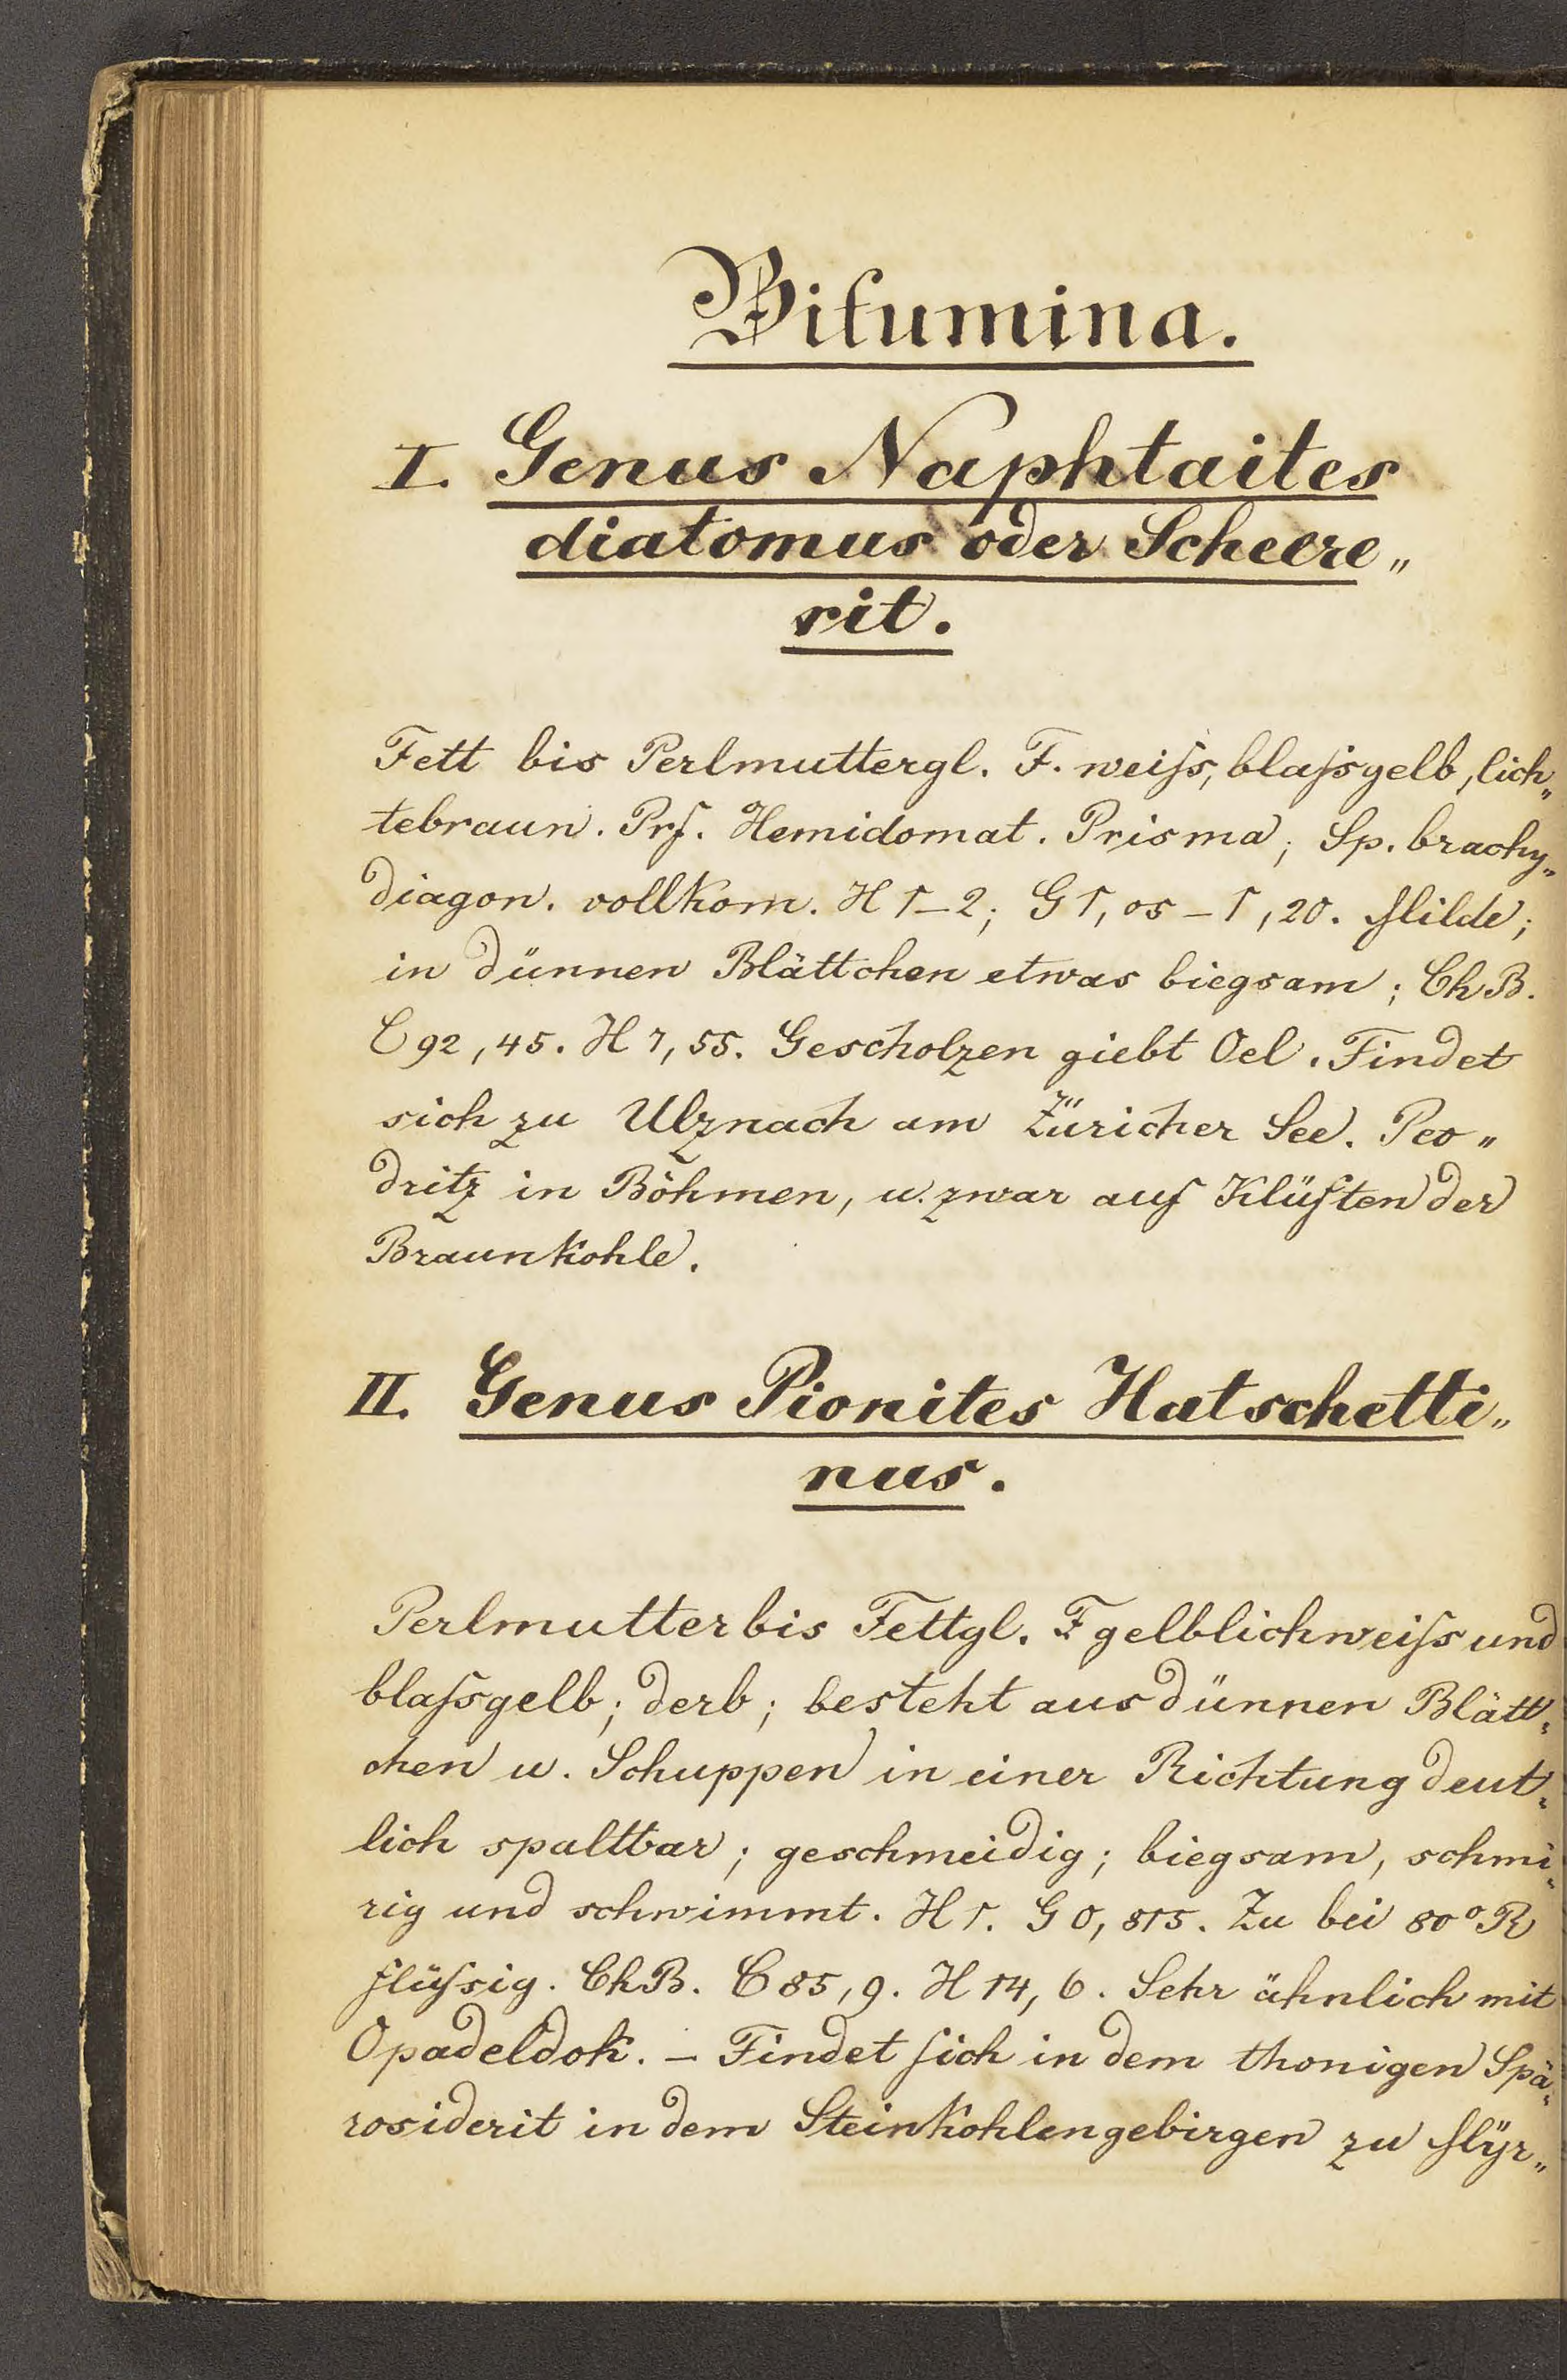 Bitumina.
I. Genus Naphtaites
diatomus oder Scheere„
rit.
Fett bis Perlmuttergl. F. weiſs, blaſsgelb, lich„
tebraun. Prf. Hemidomat. Prisma; Sp. brachy„
diagon. vollkom. H 1–2; G 1,05–1,20. Milde;
in dünnen Blättchen etwas biegsam; ChB.
C 92,45. H 7,55. Gescholzen giebt Oel. Findet
sich zu Ulznach am Züricher See. Peo„
dritz in Böhmen, u. zwar auf Klüften der
Braunkohle.
II. Genus Pionites Hatschetti„
nus.
Perlmutter bis Fettgl. F gelblichweiſs und
blaſsgelb; derb; besteht aus dünnen Blätt„
chen u. Schuppen in einer Richtung deut„
lich spaltbar; geschmeidig; biegsam, schmi„
rig und schwimmt. H 1. G 0,815. Zu bei 80° R
flüſsig. ChB. C 85,9. H 14,6. Sehr ähnlich mit
Opadeldok. – Findet ſich in dem thonigen Spä„
rosiderit in dem Steinkohlengebirgen zu Myr„